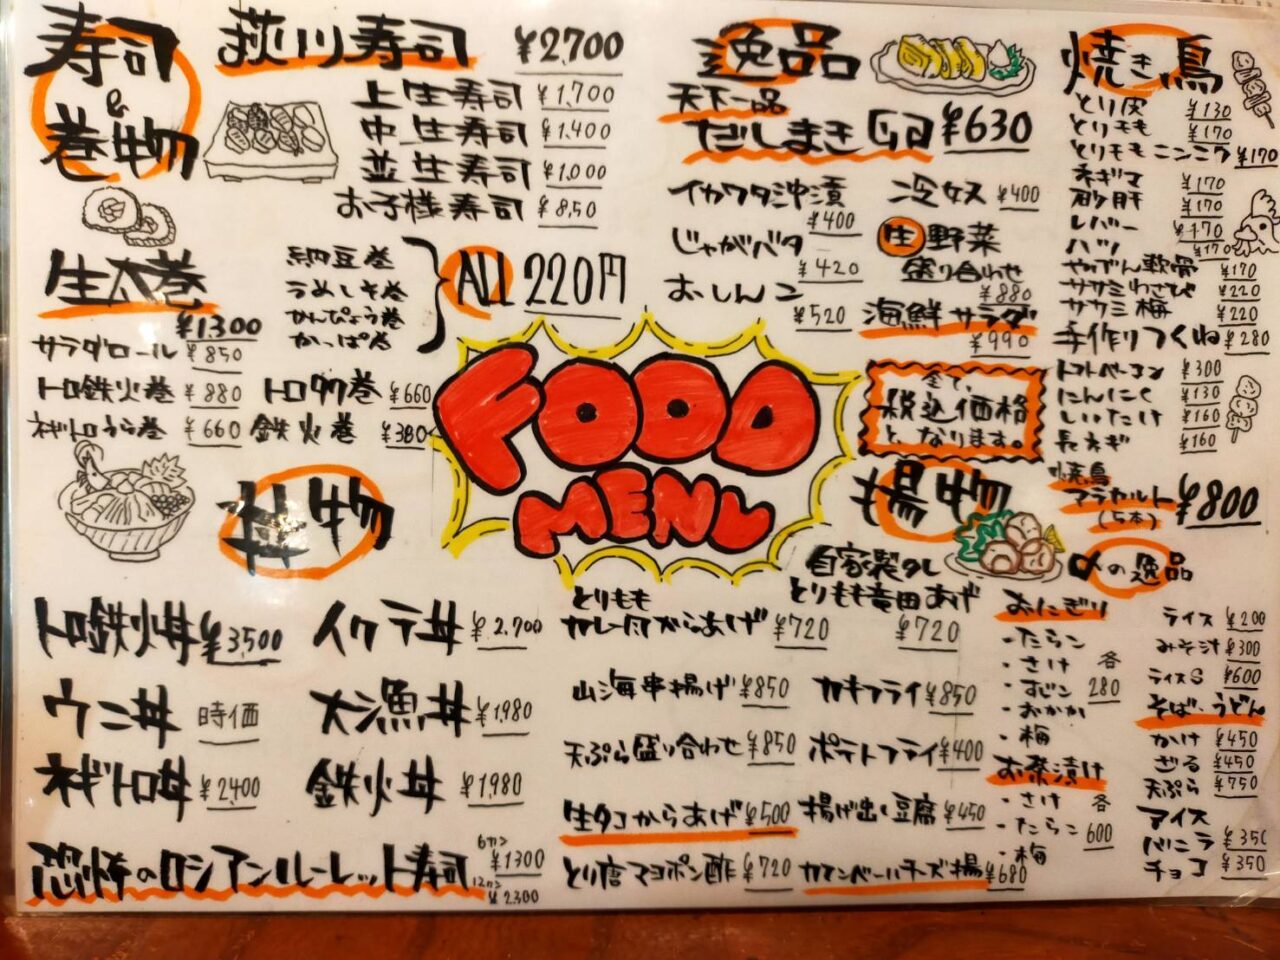 寿司
&
巻物
荻川寿司 ¥2,700
上生寿司 ¥1,700
中生寿司 ¥1,400
並生寿司 ¥1,000
お子様寿司 ¥850
生太巻
¥1300
サラダロール ¥850
トロ鉄火巻 ¥880
トロタク巻 ¥660
ネギトロうら巻 ¥660
鉄火巻 ¥380
納豆巻
うめしそ巻
かんぴょう巻
かっぱ巻
ALL 220円
FOOD
MENU
逸品
天下一品
だしまき卵 ¥630
イカワタ沖漬
¥400
冷奴 ¥400
じゃがバタ
¥420
生野菜
盛り合わせ
¥880
おしんこ
¥520
海鮮サラダ
¥990
全て、
税込価格
となります。
焼き鳥
とり皮 ¥130
とりもも ¥170
とりももニンニク ¥170
ネギマ ¥170
砂肝 ¥170
レバー ¥170
ハツ ¥170
やげん軟骨 ¥170
ササミわさび ¥220
ササミ梅 ¥220
手作りつくね ¥280
トマトベーコン ¥300
にんにく ¥130
しいたけ ¥160
長ネギ ¥160
焼鳥
アラカルト ¥800
(5本)
丼物
トロ鉄火丼 ¥3,500
イクラ丼 ¥2,700
ウニ丼 時価
大漁丼 ¥1,980
ネギトロ丼 ¥2,400
鉄火丼 ¥1,980
恐怖のロシアンルーレット寿司
6カン ¥1300
12カン ¥2,300
揚物
とりもも
カレー肉からあげ ¥720
自家製タレ
とりもも竜田あげ
¥720
山海串揚げ ¥850
カキフライ ¥850
天ぷら盛り合わせ ¥850
ポテトフライ ¥400
生タコからあげ ¥500
揚げ出し豆腐 ¥450
とり唐マヨポン酢 ¥720
カマンベールチーズ揚 ¥680
〆の逸品
おにぎり
・たらこ
・さけ
・すじこ
・おかか
・梅
各
280
お茶漬け
・さけ
・たらこ
・梅
各
600
ライス ¥200
みそ汁 ¥300
ライスS ¥600
そば、うどん
かけ ¥450
ざる ¥450
天ぷら ¥750
アイス
バニラ ¥350
チョコ ¥350